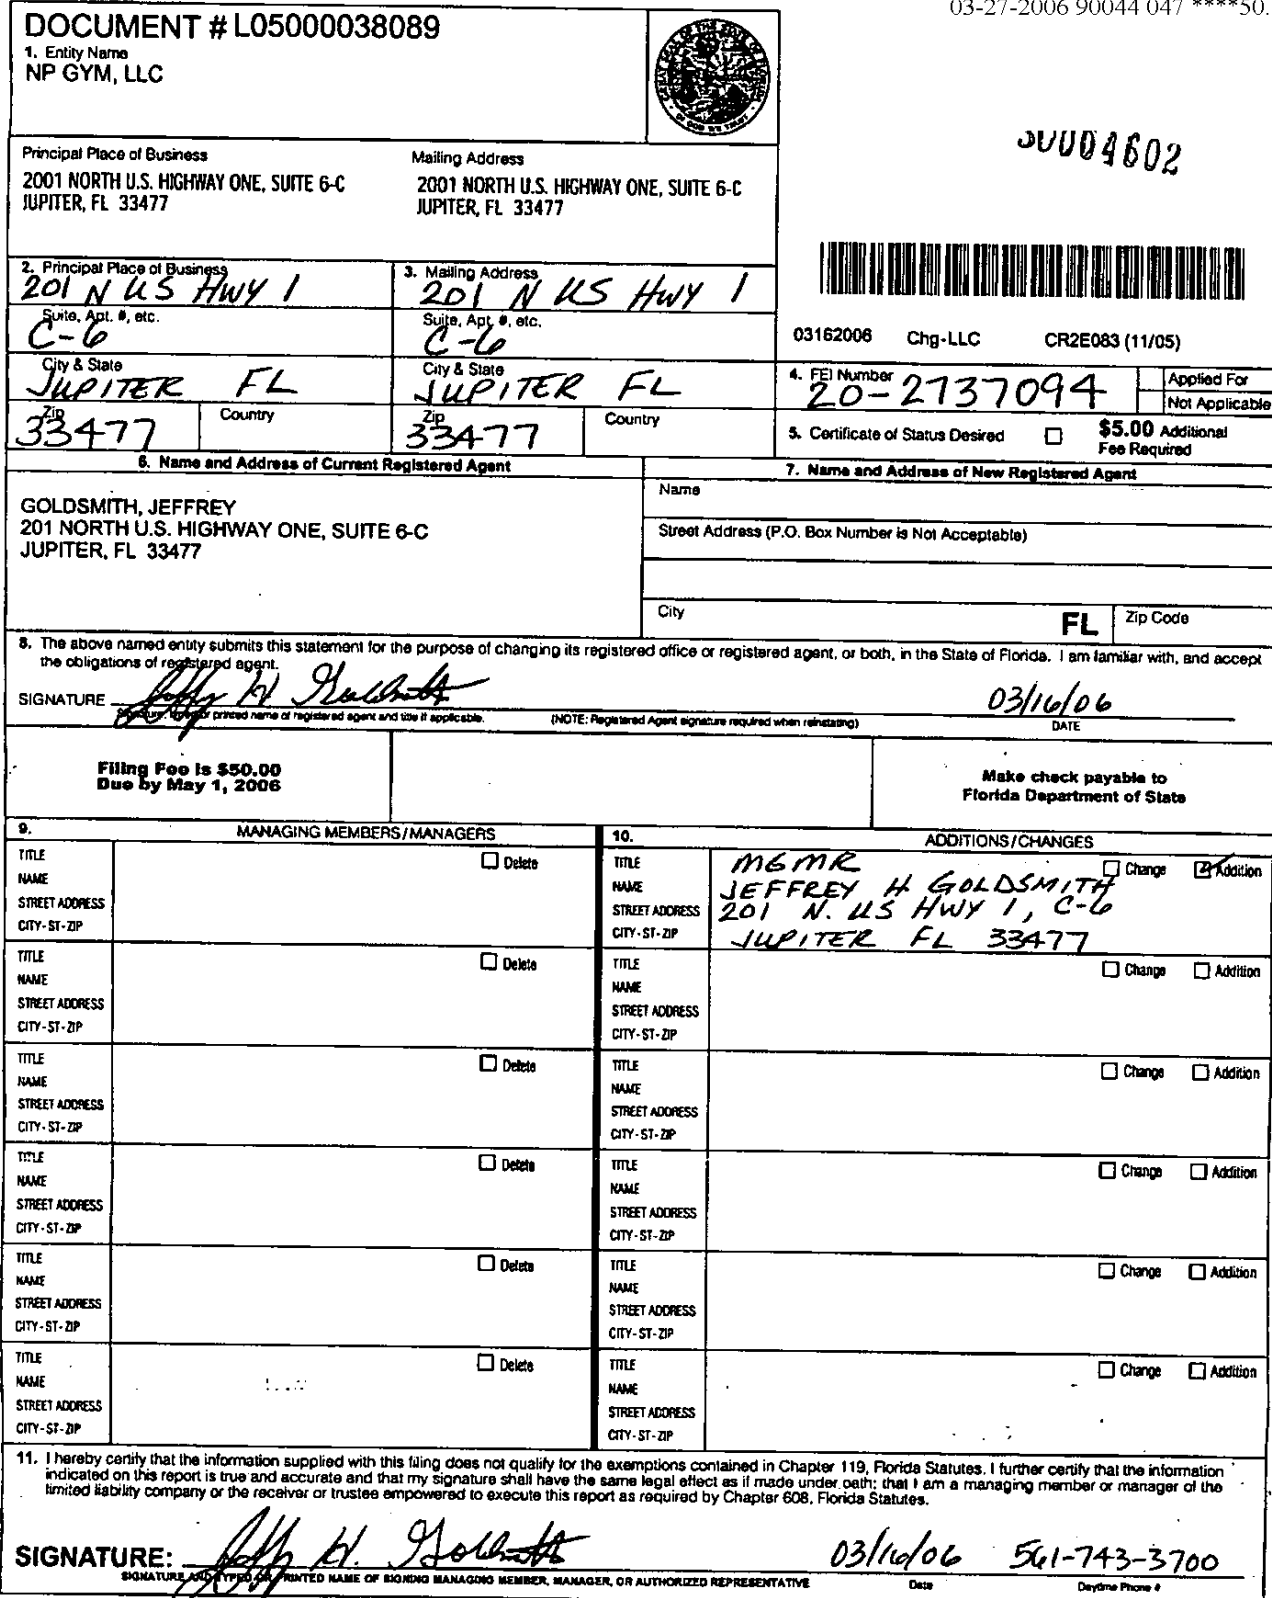 03-27-2006 90044 047 ****50.
DOCUMENT # L05000038089
1. Entity Name
NP GYM, LLC
Principal Place of Business
2001 NORTH U.S. HIGHWAY ONE, SUITE 6-C
JUPITER, FL 33477
Mailing Address
2001 NORTH U.S. HIGHWAY ONE, SUITE 6-C
JUPITER, FL 33477
2. Principal Place of Business
201 N US HWY 1
Suite, Apt. #, etc.
C-6
City & State
JUPITER FL
Zip
33477
Country
3. Mailing Address
201 N US HWY 1
Suite, Apt. #, etc.
C-6
City & State
JUPITER FL
Zip
33477
Country
03162006 Chg-LLC CR2E083 (11/05)
4. FEI Number
20-2737094
Applied For
Not Applicable
5. Certificate of Status Desired
$5.00 Additional
Fee Required
6. Name and Address of Current Registered Agent
GOLDSMITH, JEFFREY
201 NORTH U.S. HIGHWAY ONE, SUITE 6-C
JUPITER, FL 33477
7. Name and Address of New Registered Agent
Name
Street Address (P.O. Box Number is Not Acceptable)
City FL Zip Code
8. The above named entity submits this statement for the purpose of changing its registered office or registered agent, or both, in the State of Florida. I am familiar with, and accept
the obligations of registered agent.
SIGNATURE 03/16/06
printed name of registered agent and title if applicable. (NOTE: Registered Agent signature required when reinstating) DATE
Filing Fee is $50.00
Due by May 1, 2006
Make check payable to
Florida Department of State
9. MANAGING MEMBERS/MANAGERS
TITLE Delete
NAME
STREET ADDRESS
CITY-ST-ZIP
TITLE Delete
NAME
STREET ADDRESS
CITY-ST-ZIP
TITLE Delete
NAME
STREET ADDRESS
CITY-ST-ZIP
TITLE Delete
NAME
STREET ADDRESS
CITY-ST-ZIP
TITLE Delete
NAME
STREET ADDRESS
CITY-ST-ZIP
TITLE Delete
NAME
STREET ADDRESS
CITY-ST-ZIP
10. ADDITIONS/CHANGES
TITLE MGMR Change Addition
NAME JEFFREY H GOLDSMITH
STREET ADDRESS 201 N. US HWY 1, C-6
CITY-ST-ZIP JUPITER FL 33477
TITLE Change Addition
NAME
STREET ADDRESS
CITY-ST-ZIP
TITLE Change Addition
NAME
STREET ADDRESS
CITY-ST-ZIP
TITLE Change Addition
NAME
STREET ADDRESS
CITY-ST-ZIP
TITLE Change Addition
NAME
STREET ADDRESS
CITY-ST-ZIP
TITLE Change Addition
NAME
STREET ADDRESS
CITY-ST-ZIP
11. I hereby certify that the information supplied with this filing does not qualify for the exemptions contained in Chapter 119, Florida Statutes. I further certify that the information
indicated on this report is true and accurate and that my signature shall have the same legal effect as if made under oath; that I am a managing member or manager of the
limited liability company or the receiver or trustee empowered to execute this report as required by Chapter 608, Florida Statutes.
SIGNATURE: 03/16/06 561-743-3700
SIGNATURE AND TYPED OR PRINTED NAME OF SIGNING MANAGING MEMBER, MANAGER, OR AUTHORIZED REPRESENTATIVE Date Daytime Phone #